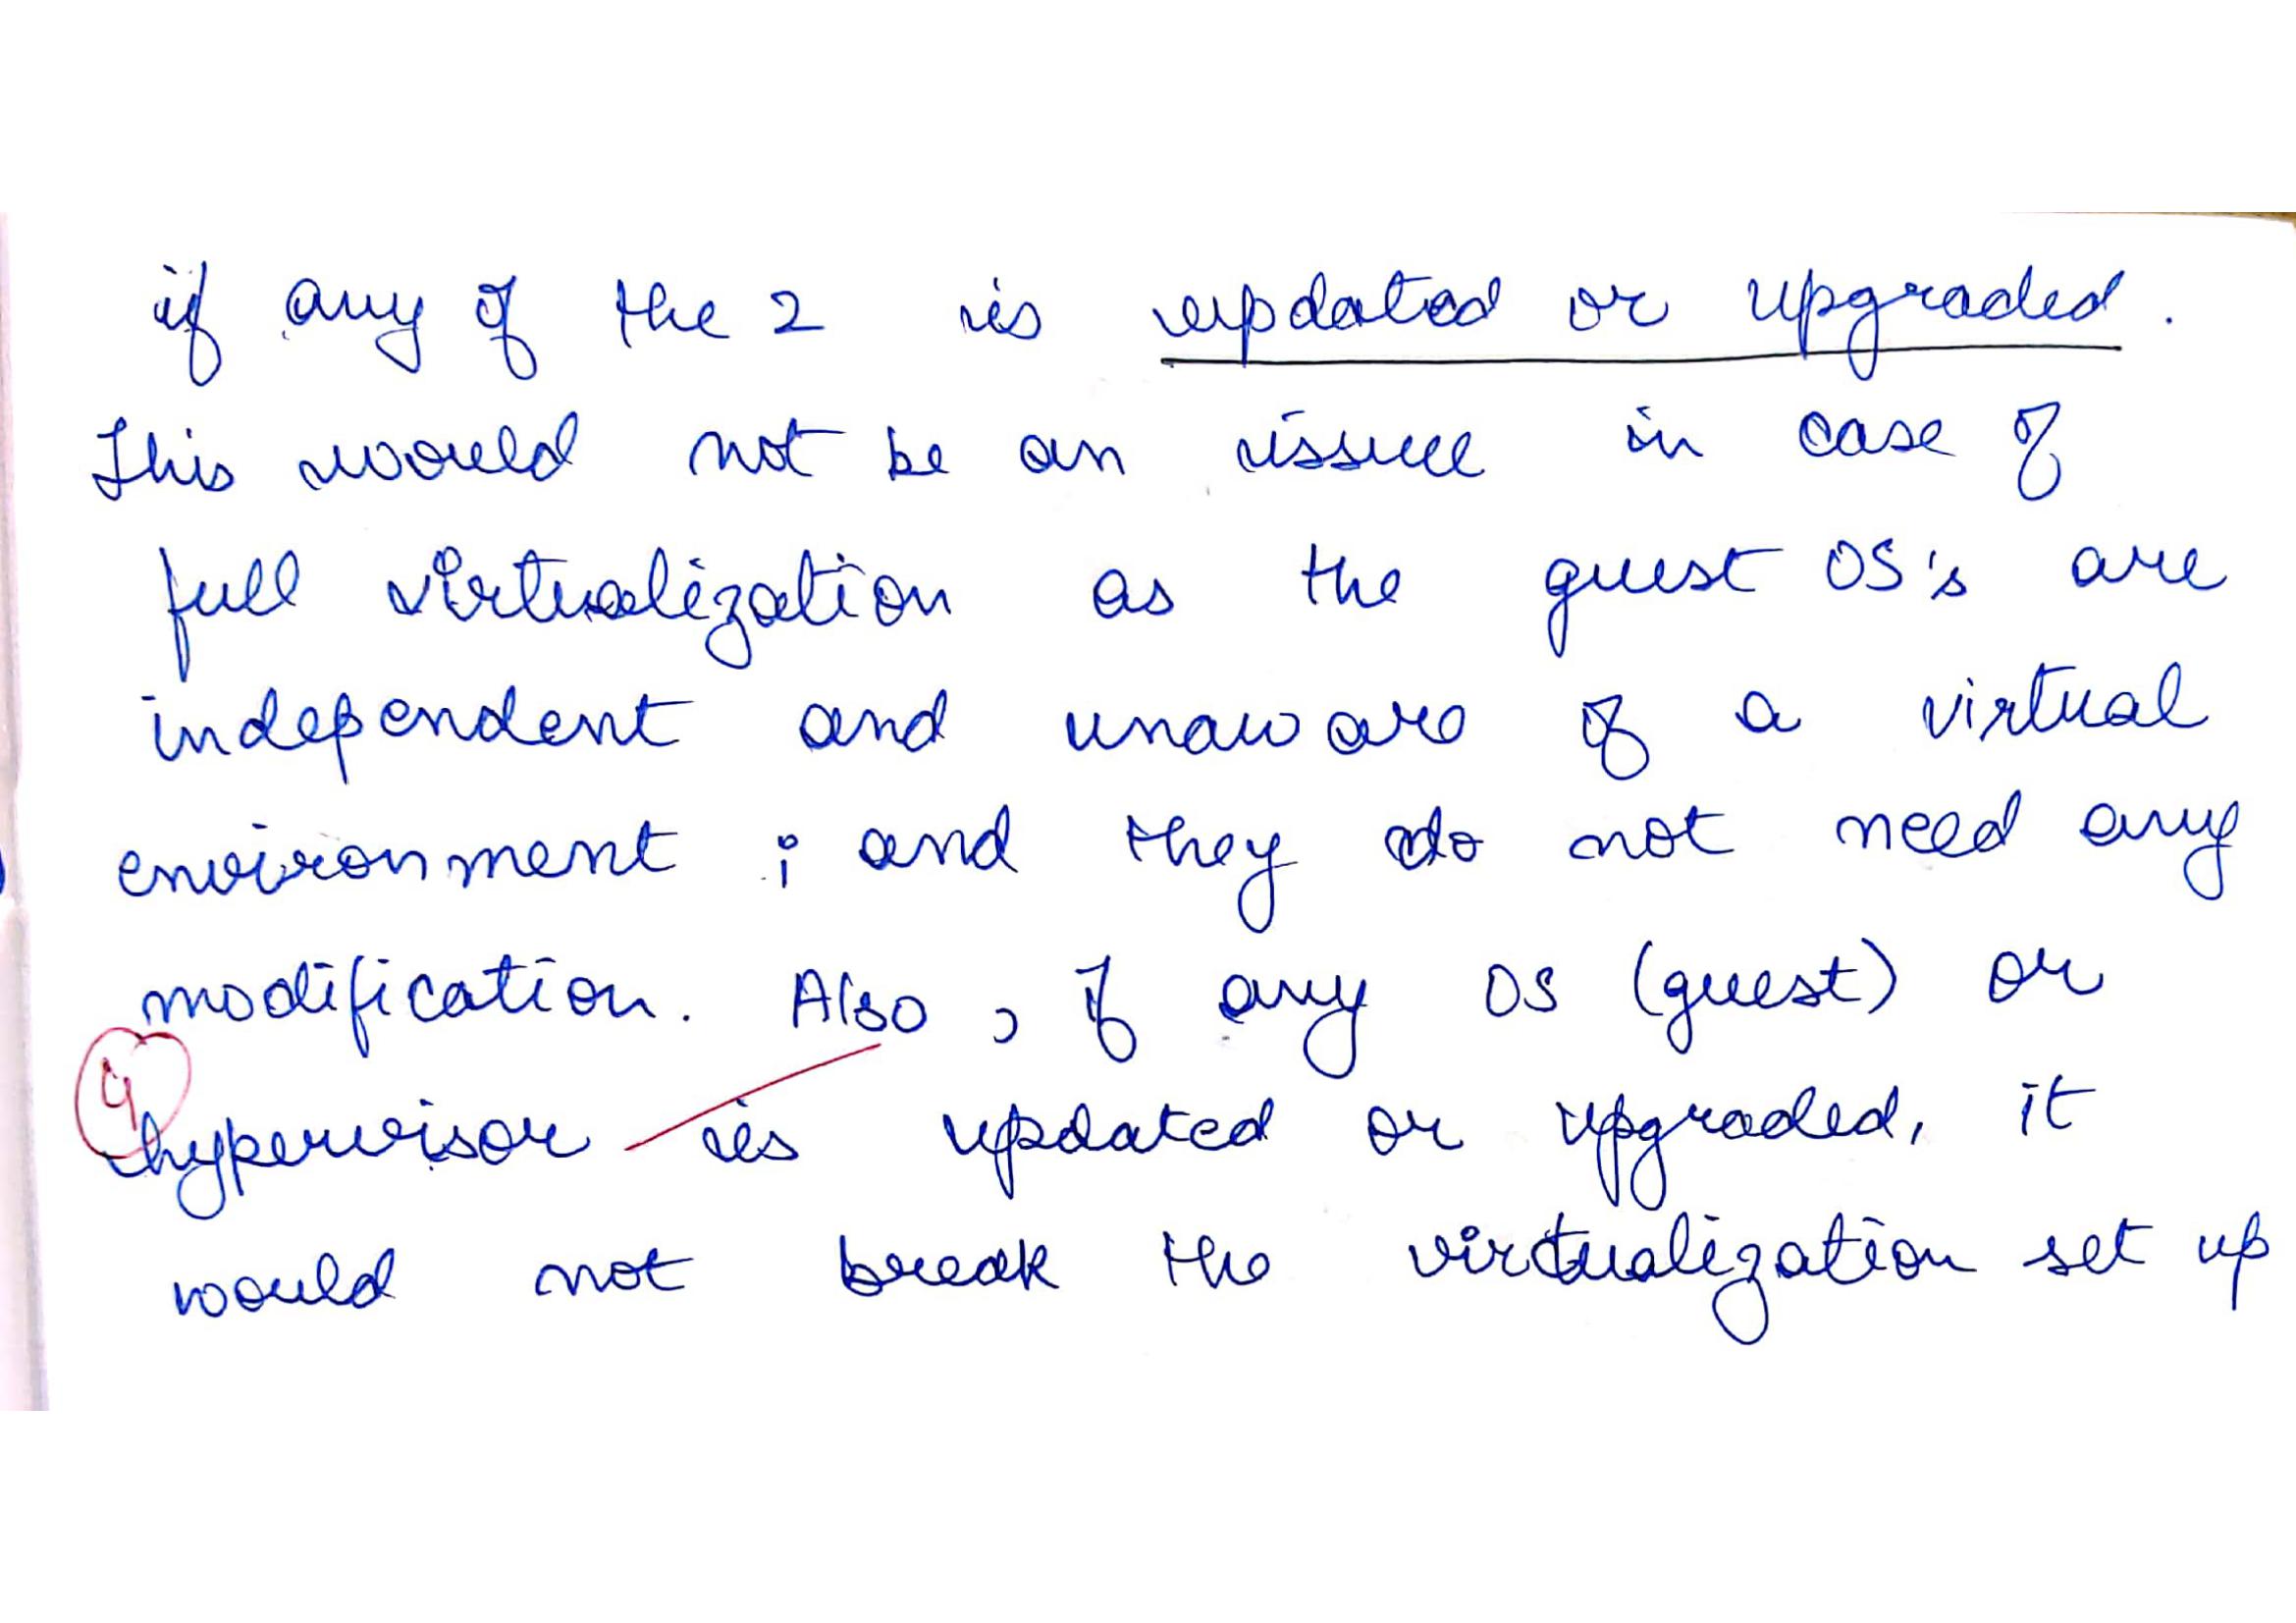 if any of the 2 is updated or upgraded.
This would not be an issue in case of
full virtualization as the guest OS's are
independent and unaware of a virtual
environment ; and they do not need any
modification. Also , if any OS (guest) or
4
hypervisor is updated or upgraded, it
would not break the virtualization set up